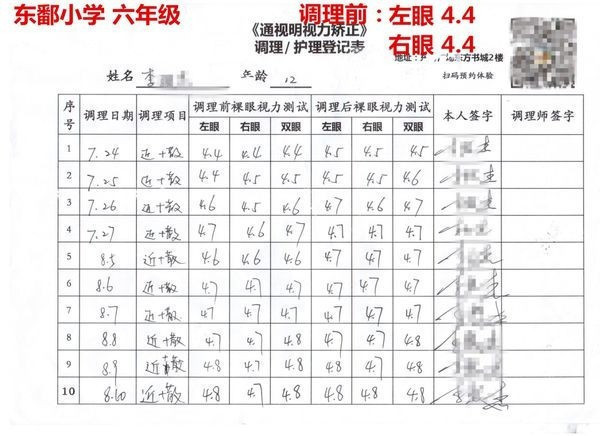 东鄱小学 六年级 调理前：左眼 4.4
右眼 4.4
《通视明视力矫正》
调理/护理登记表
地址： 东方书城2楼
扫码预约体验
姓名 李 年龄 12
序号 调理日期 调理项目 调理前裸眼视力测试 调理后裸眼视力测试 本人签字 调理师签字
左眼 右眼 双眼 左眼 右眼 双眼
1 7.24 近+散 4.4 4.4 4.4 4.5 4.5 4.5
2 7.25 近+散 4.4 4.5 4.5 4.5 4.5 4.6
3 7.26 近+散 4.6 4.5 4.6 4.7 4.6 4.7
4 7.27 近+散 4.7 4.6 4.7 4.7 4.7 4.7
5 8.5 近+散 4.6 4.6 4.6 4.7 4.7 4.7
6 8.6 近+散 4.7 4.7 4.7 4.7 4.7 4.7
7 8.7 近+散 4.7 4.7 4.7 4.7 4.7 4.7
8 8.8 近+散 4.7 4.7 4.8 4.8 4.7 4.8
9 8.9 近+散 4.8 4.7 4.8 4.8 4.7 4.8
10 8.10 近+散 4.8 4.7 4.8 4.8 4.8 4.8